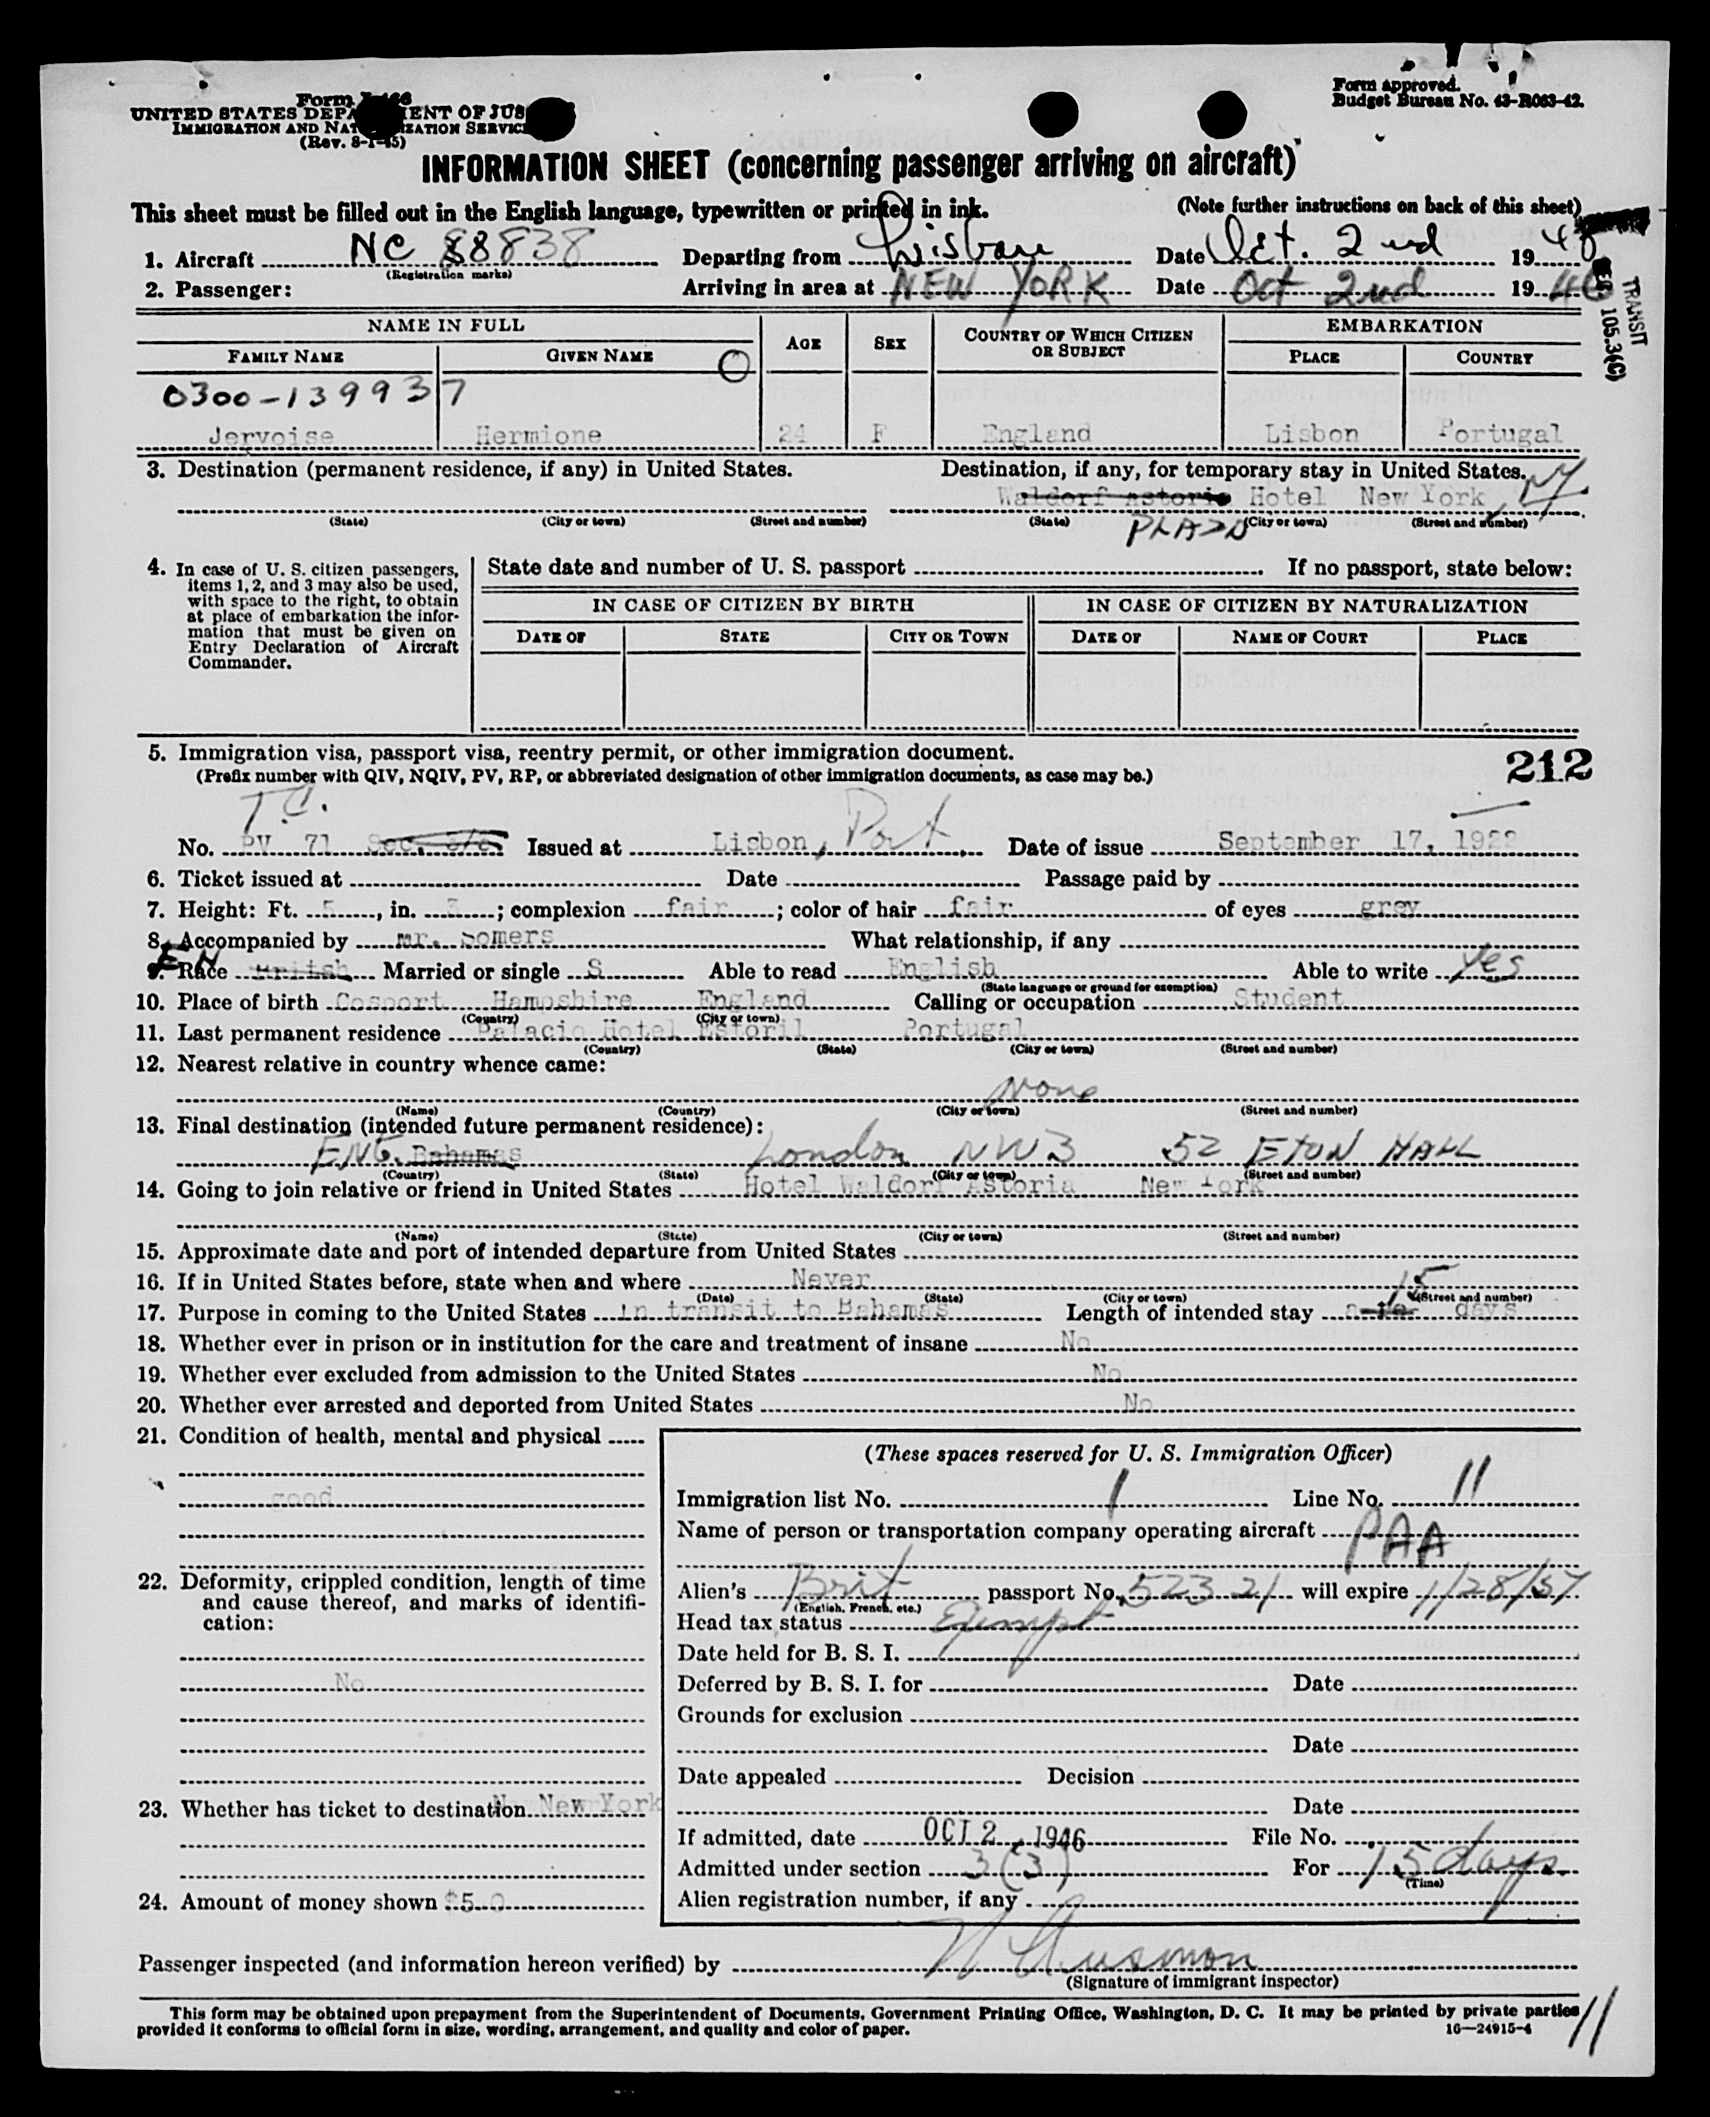 Form approved.
Budget Bureau No. 43-R063-42.
Form
UNITED STATES DEPA MENT OF JUS
IMMIGRATION AND NAT IZATION SERVIC
(Rev. 8-1-45)
INFORMATION SHEET (concerning passenger arriving on aircraft)
This sheet must be filled out in the English language, typewritten or printed in ink. (Note further instructions on back of this sheet)
1. Aircraft NC 88838 Departing from Lisbon Date Oct. 2nd 1946
(Registration marks)
2. Passenger: Arriving in area at NEW YORK Date Oct 2nd 1946
TRANSIT
105.3(C)
NAME IN FULL AGE SEX COUNTRY OF WHICH CITIZEN OR SUBJECT EMBARKATION
FAMILY NAME GIVEN NAME PLACE COUNTRY
0300-139937
Jervoise Hermione 24 F England Lisbon Portugal
3. Destination (permanent residence, if any) in United States. Destination, if any, for temporary stay in United States.
Waldorf Astoria Hotel New York, NY
(State) (City or town) (Street and number) (State) PLAZA (City or town) (Street and number)
4. In case of U. S. citizen passengers, items 1, 2, and 3 may also be used, with space to the right, to obtain at place of embarkation the information that must be given on Entry Declaration of Aircraft Commander.
State date and number of U. S. passport If no passport, state below:
IN CASE OF CITIZEN BY BIRTH IN CASE OF CITIZEN BY NATURALIZATION
DATE OF STATE CITY OR TOWN DATE OF NAME OF COURT PLACE
5. Immigration visa, passport visa, reentry permit, or other immigration document. 212
(Prefix number with QIV, NQIV, PV, RP, or abbreviated designation of other immigration documents, as case may be.)
T.C.
No. PV 71 Sec. Issued at Lisbon, Port Date of issue September 17, 1922
6. Ticket issued at Date Passage paid by
7. Height: Ft. 5, in. 3; complexion fair; color of hair fair of eyes grey
8. Accompanied by Mr. Somers What relationship, if any
EN
9. Race British Married or single S Able to read English Able to write Yes
(State language or ground for exemption)
10. Place of birth Gosport Hampshire England Calling or occupation Student
(Country) (City or town)
11. Last permanent residence Palacio Hotel Estoril Portugal
(Country) (State) (City or town) (Street and number)
12. Nearest relative in country whence came:
None
(Name) (Country) (City or town) (Street and number)
13. Final destination (intended future permanent residence):
ENG. Bahamas London NW3 52 ETON HALL
(Country) (State) (City or town) (Street and number)
14. Going to join relative or friend in United States Hotel Waldorf Astoria New York
(Name) (State) (City or town) (Street and number)
15. Approximate date and port of intended departure from United States
16. If in United States before, state when and where Never
(Date) (State) (City or town) (Street and number)
17. Purpose in coming to the United States In transit to Bahamas Length of intended stay a few 15 days
18. Whether ever in prison or in institution for the care and treatment of insane No
19. Whether ever excluded from admission to the United States No
20. Whether ever arrested and deported from United States No
21. Condition of health, mental and physical
good
22. Deformity, crippled condition, length of time and cause thereof, and marks of identification:
No
23. Whether has ticket to destination New York
24. Amount of money shown $5 0
(These spaces reserved for U. S. Immigration Officer)
Immigration list No. 1 Line No. 11
Name of person or transportation company operating aircraft PAA
Alien's Brit passport No. 52321 will expire 1/28/57
(English, French, etc.)
Head tax status Exempt
Date held for B. S. I.
Deferred by B. S. I. for Date
Grounds for exclusion
Date
Date appealed Decision
Date
If admitted, date OCT 2, 1946 File No.
Admitted under section 3(3) For 15 days
(Time)
Alien registration number, if any
Passenger inspected (and information hereon verified) by
(Signature of immigrant inspector)
This form may be obtained upon prepayment from the Superintendent of Documents, Government Printing Office, Washington, D. C. It may be printed by private parties
provided it conforms to official form in size, wording, arrangement, and quality and color of paper. 16—24915-4
11